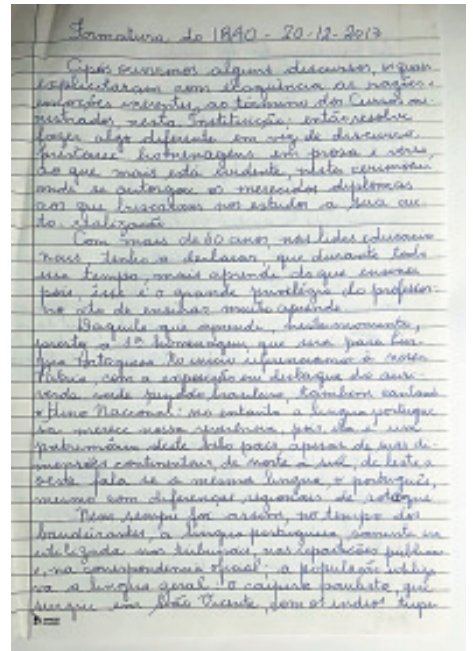 Formatura do 1890 - 20-12-2013
Após ouvirmos alguns discursos, os quais
explicitaram com eloquência as razões e
emoções inerentes, ao término dos Cursos mi-
nistrados, nesta Instituição, então resolvi
fazer algo diferente em vez de discurso
prestarei homenagens em prosa e verso,
ao que mais está evidente, nesta cerimônia
onde se outorgou os merecidos diplomas
aos que buscaram nos estudos a sua
realização.
Com mais de 60 anos, nas lides educacio-
nais, tenho a destacar, que durante todo
esse tempo, mais aprendi do que ensinei
pois, esse é o grande privilégio do professor:
no ato de ensinar muito aprende.
Daquilo que aprendi, neste momento,
presto a 1ª homenagem que será para Lín-
gua Portuguesa. No início reverenciamos a nossa
Pátria, com a exposição em destaque do auri-
verde, verde pendão brasileiro, também cantamos
o Hino Nacional: no entanto a língua portugue-
sa merece nossa reverência, pois ela é um
patrimônio deste belo país, apesar de suas di-
mensões continentais, de norte a sul, de leste a
oeste fala se a mesma língua, o português,
mesmo com diferenças regionais de sotaque.
Nem sempre foi assim, no tempo dos
bandeirantes, a língua portuguesa, somente era
utilizada nos tribunais, nas repartições públicas
e, na correspondência oficial; a população utiliza-
va a língua geral: o caipira paulista, que
surgiu em São Vicente, com os índios tupi